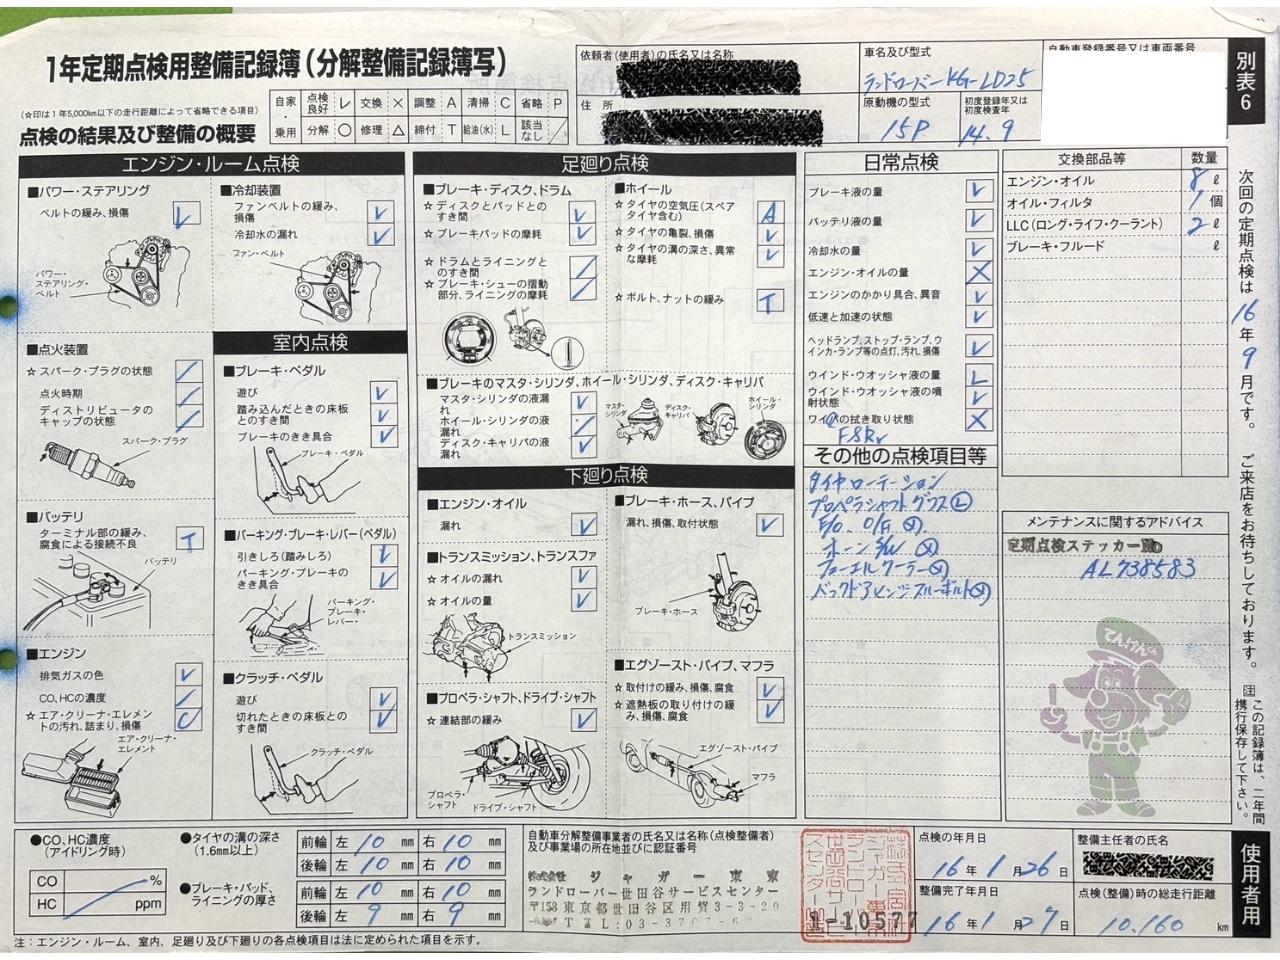 1年定期点検用整備記録簿(分解整備記録簿写)
(☆印は1年5,000km以下の走行距離によって省略できる項目)
点検の結果及び整備の概要
自家・乗用
点検良好 レ 交換 × 調整 A 清掃 C 省略 P
分解 ○ 修理 △ 締付 T 給油(水) L 該当なし /
依頼者(使用者)の氏名又は名称
住所
車名及び型式
ランドローバー KG-LD25
原動機の型式
15P
初度登録年又は初度検査年
14.9
自動車登録番号又は車両番号
別表6
エンジン・ルーム点検
■パワー・ステアリング
ベルトの緩み、損傷 レ
パワー・ステアリング・ベルト
■冷却装置
ファンベルトの緩み、損傷 レ
冷却水の漏れ レ
ファン・ベルト
■点火装置
☆スパーク・プラグの状態 /
点火時期 /
ディストリビュータのキャップの状態 /
スパーク・プラグ
■バッテリ
ターミナル部の緩み、腐食による接続不良 T
バッテリ
■エンジン
排気ガスの色 レ
CO、HCの濃度 /
☆エア・クリーナ・エレメントの汚れ、詰まり、損傷 C
エア・クリーナ・エレメント
室内点検
■ブレーキ・ペダル
遊び レ
踏み込んだときの床板とのすき間 レ
ブレーキのきき具合 レ
ブレーキ・ペダル
■パーキング・ブレーキ・レバー(ペダル)
引きしろ(踏みしろ) レ
パーキング・ブレーキのきき具合 レ
パーキング・ブレーキ・レバー
■クラッチ・ペダル
遊び レ
切れたときの床板とのすき間 レ
クラッチ・ペダル
足廻り点検
■ブレーキ・ディスク、ドラム
☆ディスクとパッドとのすき間 レ
☆ブレーキパッドの摩耗 レ
☆ドラムとライニングとのすき間 /
☆ブレーキ・シューの摺動部分、ライニングの摩耗 /
■ホイール
☆タイヤの空気圧(スペアタイヤ含む) A
☆タイヤの亀裂、損傷 レ
☆タイヤの溝の深さ、異常な摩耗 レ
☆ボルト、ナットの緩み T
■ブレーキのマスタ・シリンダ、ホイール・シリンダ、ディスク・キャリパ
マスタ・シリンダの液漏れ レ
ホイール・シリンダの液漏れ /
ディスク・キャリパの液漏れ レ
マスタ・シリンダ
ディスク・キャリパ
ホイール・シリンダ
下廻り点検
■エンジン・オイル
漏れ レ
■トランスミッション、トランスファ
☆オイルの漏れ レ
☆オイルの量 レ
トランスミッション
■プロペラ・シャフト、ドライブ・シャフト
☆連結部の緩み レ
プロペラ・シャフト
ドライブ・シャフト
■ブレーキ・ホース、パイプ
漏れ、損傷、取付状態 レ
ブレーキ・ホース
■エグゾースト・パイプ、マフラ
☆取付けの緩み、損傷、腐食 レ
☆遮熱板の取り付けの緩み、損傷、腐食 レ
エグゾースト・パイプ
マフラ
日常点検
ブレーキ液の量 レ
バッテリ液の量 レ
冷却水の量 レ
エンジン・オイルの量 ×
エンジンのかかり具合、異音 レ
低速と加速の状態 レ
ヘッドランプ、ストップ・ランプ、ウインカ・ランプ等の点灯、汚れ、損傷 レ
ウインド・ウオッシャ液の量 L
ウインド・ウオッシャ液の噴射状態 レ
ワイパの拭き取り状態 ×
その他の点検項目等
タイヤローテーション
プロペラシャフトグリスⓁ
E/O、O/E ⓧ
フューエルクーラーⓧ
交換部品等 数量
エンジン・オイル 8 ℓ
オイル・フィルタ 1 個
LLC(ロング・ライフ・クーラント) 2 ℓ
ブレーキ・フルード ℓ
メンテナンスに関するアドバイス
定期点検ステッカーNo
AL738583
てんけんくん
次回の定期点検は16年9月です。 ご来店をお待ちしております。
注 この記録簿は、二年間携行保存して下さい。
使用者用
●CO、HC濃度(アイドリング時)
CO %
HC ppm
●タイヤの溝の深さ(1.6mm以上)
前輪 左 10 mm 右 10 mm
後輪 左 10 mm 右 10 mm
●ブレーキ・パッド、ライニングの厚さ
前輪 左 10 mm 右 10 mm
後輪 左 9 mm 右 9 mm
自動車分解整備事業者の氏名又は名称(点検整備者)及び事業場の所在地並びに認証番号
株式会社 ジャガー東京
ランドローバー世田谷サービスセンター
〒158 東京都世田谷区用賀3-3-20
TEL:03-3707-6
1-10577
点検の年月日
16年1月26日
整備完了年月日
16年1月27日
整備主任者の氏名
点検(整備)時の総走行距離
10,160 km
注:エンジン・ルーム、室内、足廻り及び下廻りの各点検項目は法に定められた項目を示す。